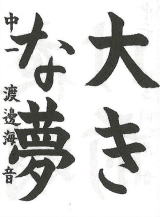 大き
な夢
中一 渡邉海音